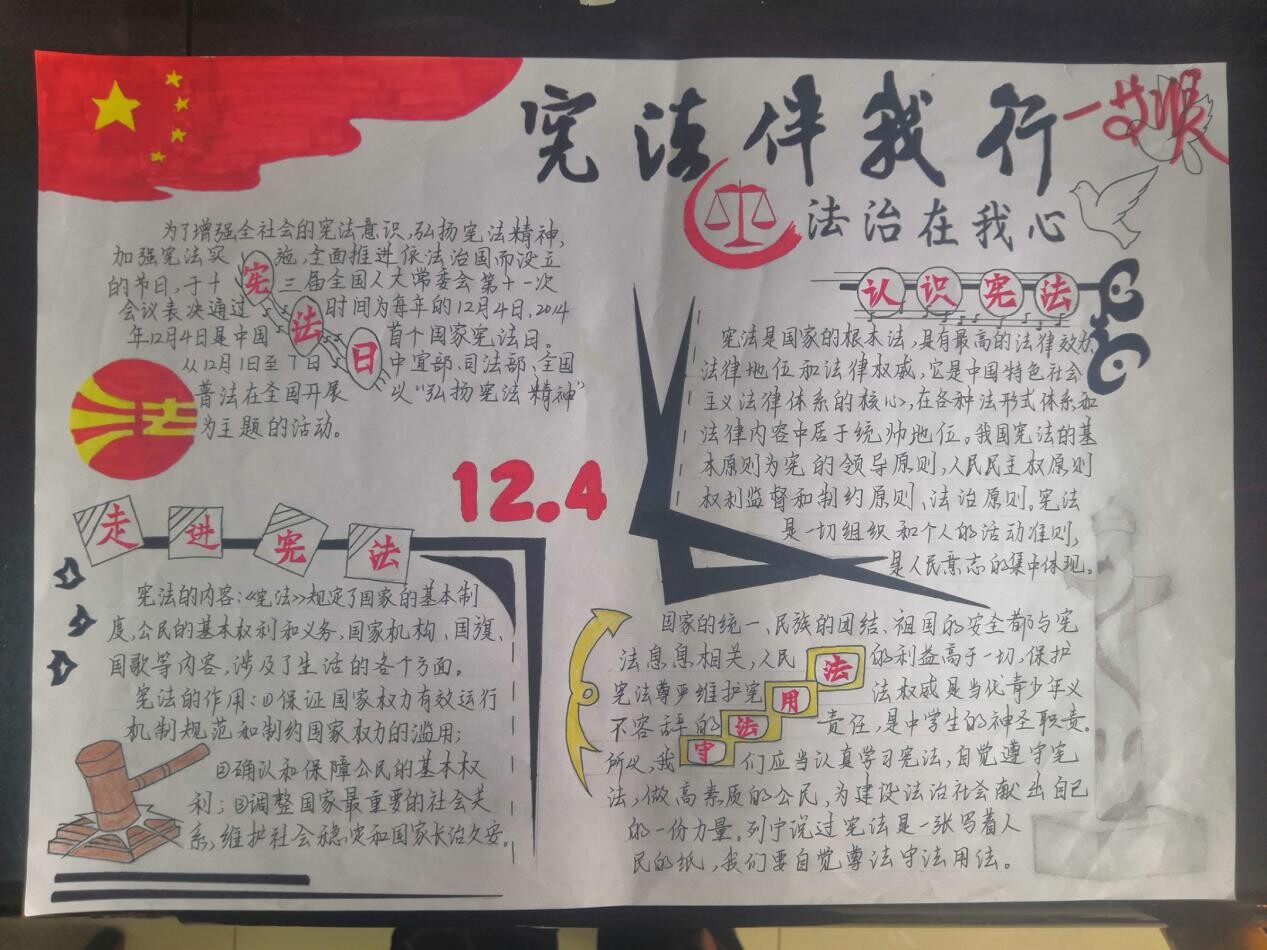 宪法伴我行
法治在我心
为了增强全社会的宪法意识,弘扬宪法精神,
加强宪法实施,全面推进依法治国而设立
的节日,于十三届全国人大常委会第十一次
会议表决通过时间为每年的12月4日,2014
年12月4日是中国首个国家宪法日。
从12月1日至7日中宣部、司法部、全国
普法在全国开展以“弘扬宪法精神”
为主题的活动。
宪法日
法
12.4
走进宪法
宪法的内容:《宪法》规定了国家的基本制
度,公民的基本权利和义务,国家机构、国旗、
国歌等内容,涉及了生活的各个方面。
宪法的作用:①保证国家权力有效运行
机制规范和制约国家权力的滥用;
②确认和保障公民的基本权
利;③调整国家最重要的社会关
系,维护社会稳定和国家长治久安。
认识宪法
宪法是国家的根本法,具有最高的法律效力
法律地位和法律权威,它是中国特色社会
主义法律体系的核心,在各种法形式体系和
法律内容中居于统帅地位。我国宪法的基
本原则为宪的领导原则,人民民主权原则
权利监督和制约原则、法治原则。宪法
是一切组织和个人的活动准则,
是人民意志的集中体现。
国家的统一、民族的团结、祖国的安全都与宪
法息息相关,人民的利益高于一切,保护
宪法尊严维护宪法权威是当代青少年义
不容辞的责任,是中学生的神圣职责。
所以,我们应当认真学习宪法,自觉遵守宪
法,做高素质的公民,为建设法治社会献出自己
的一份力量。列宁说过宪法是一张写着人
民的纸,我们要自觉尊法守法用法。
守法用法